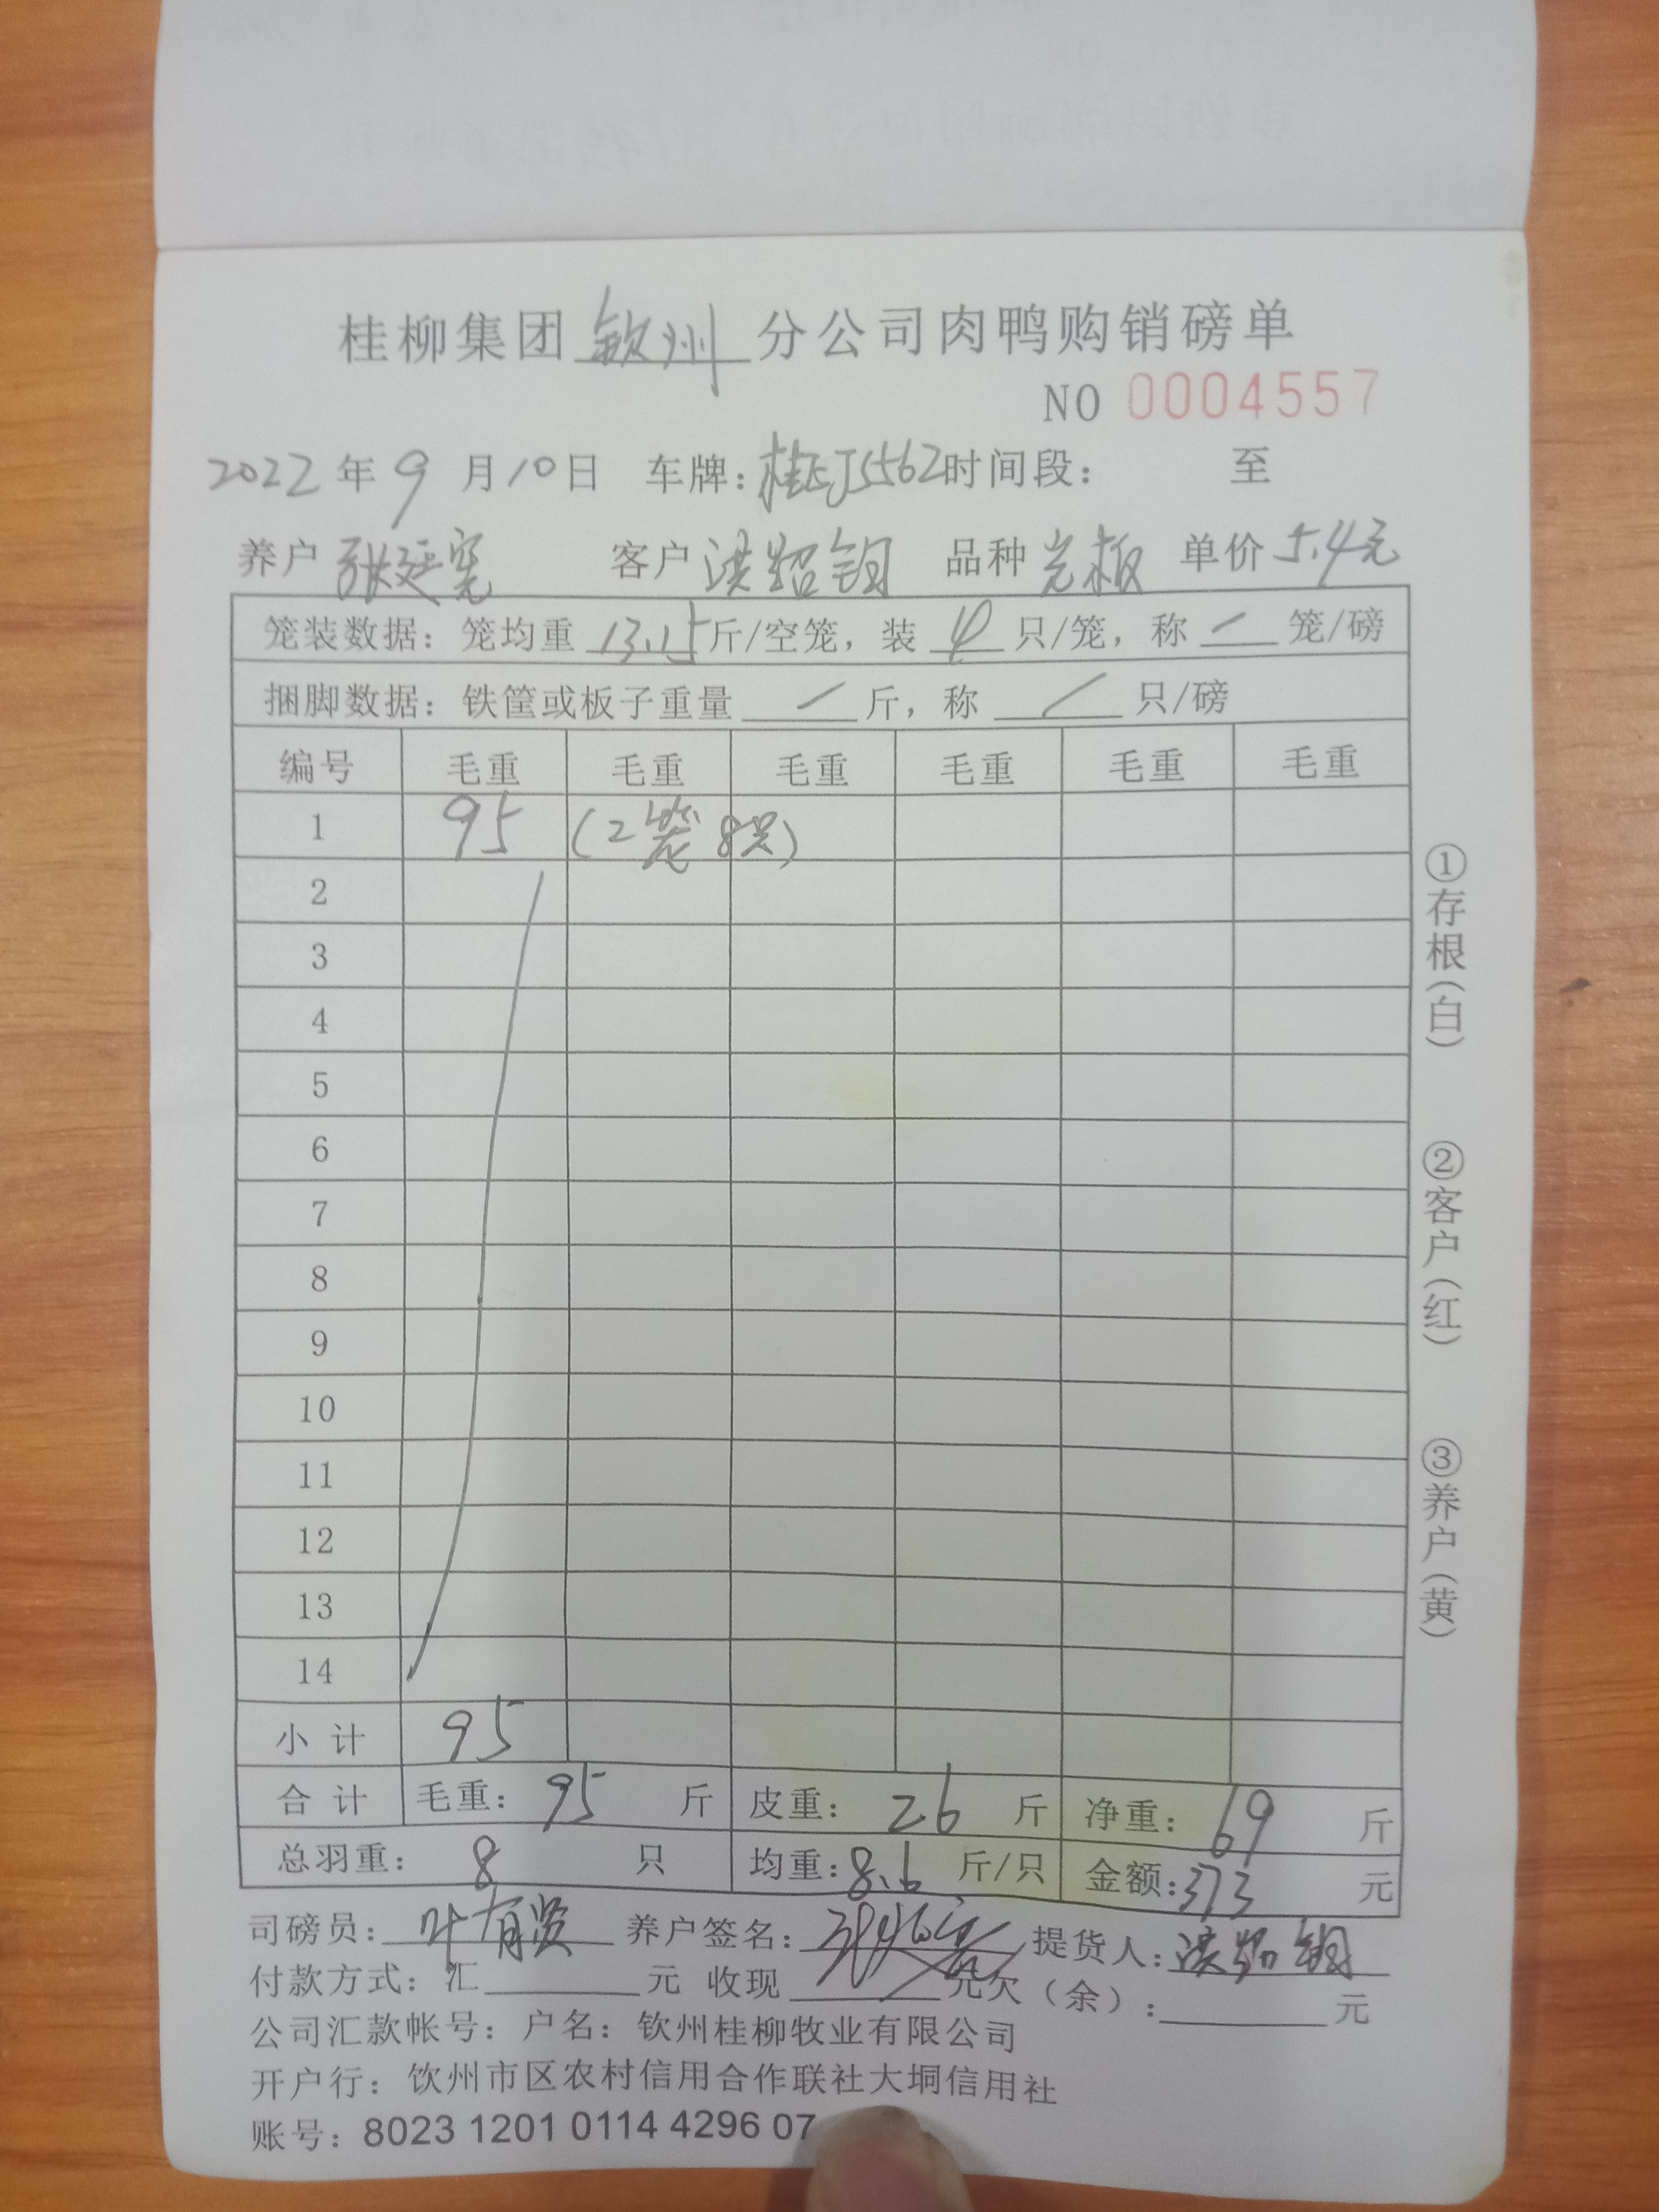 桂柳集团钦州分公司肉鸭购销磅单
NO 0004557
2022年9月10日 车牌：桂EJ5562 时间段： 至
养户 张延宪 客户 洪绍钥 品种 光板 单价 5.4元
笼装数据：笼均重 13.15 斤/空笼，装 4 只/笼，称 / 笼/磅
捆脚数据：铁筐或板子重量 / 斤，称 / 只/磅
编号 毛重 毛重 毛重 毛重 毛重 毛重
1 95 (2笼8只)
2
3
4
5
6
7
8
9
10
11
12
13
14
小计 95
合计 毛重：95 斤 皮重：26 斤 净重：69 斤
总羽重：8 只 均重：8.6 斤/只 金额：373 元
司磅员：叶有贤 养户签名： 提货人：洪绍钥
付款方式：汇 元 收现 元欠（余）： 元
公司汇款帐号：户名：钦州桂柳牧业有限公司
开户行：饮州市区农村信用合作联社大垌信用社
账号：8023 1201 0114 4296 07
①存根(白)
②客户(红)
③养户(黄)